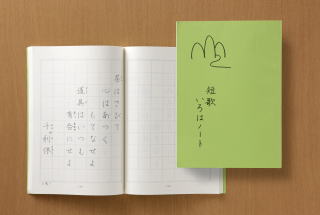 茶はさびて
心はあつく
もてなせよ
道具はいつも
有合にせよ
千利休
短歌
いろはノート